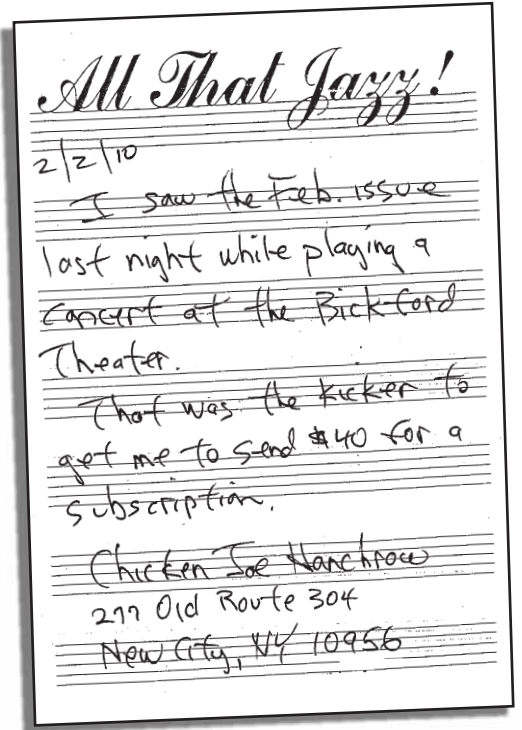 All That Jazz!
2/2/10
I saw the Feb. issue
last night while playing a
concert at the Bickford
Theater.
That was the kicker to
get me to send $40 for a
subscription.
Chicken Joe Hanchrow
277 Old Route 304
New City, NY 10956